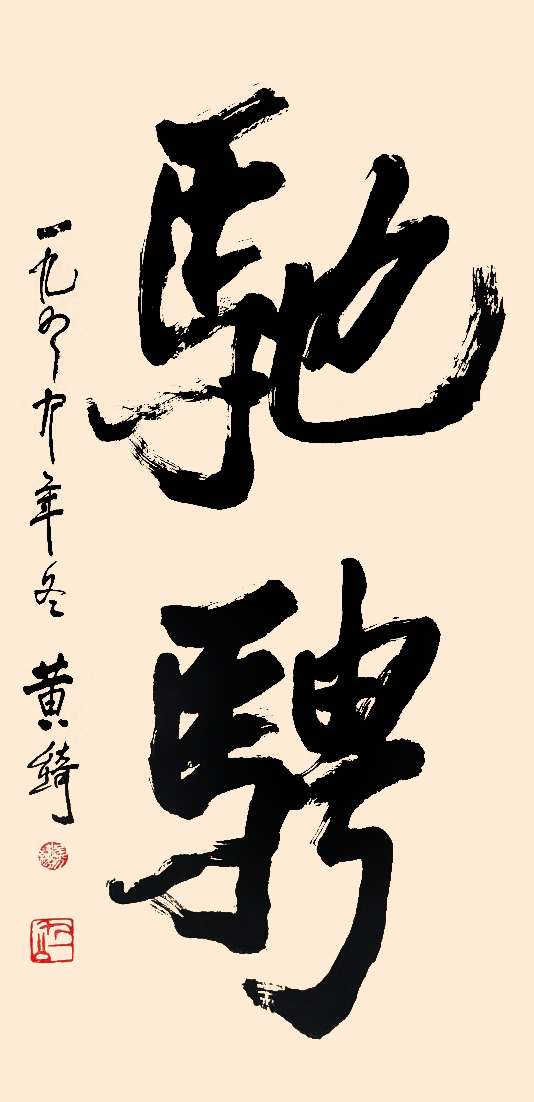 馳騁
一九九九年冬 黄綺